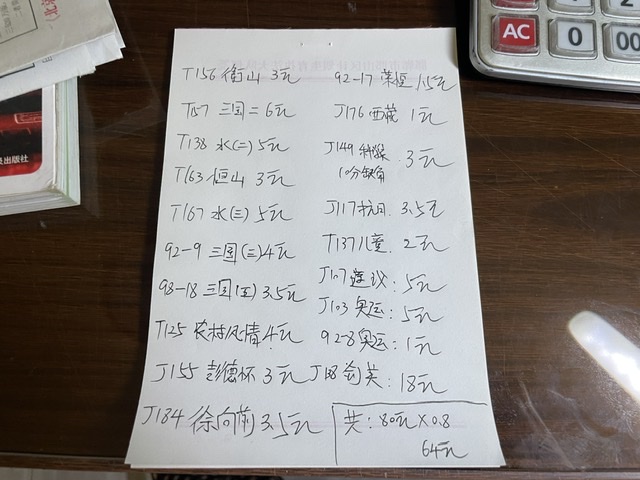 T156 衡山 3元
T157 三国二 6元
T138 水(二) 5元
T163 恒山 3元
T167 水(三) 5元
92-9 三国(三) 4元
98-18 三国(五) 3.5元
T125 农村风情 4元
J155 彭德怀 3元
J184 徐向前 3.5元
92-17 荣恒 1.5元
J176 西藏 1元
J149 科技 3元
10分缺角
J117 抗日 3.5元
T137 儿童 2元
J107 遵义: 5元
J103 奥运: 5元
92-8 奥运: 1元
18元
共: 80元×0.8
64元
AC
0
00
泉出版社